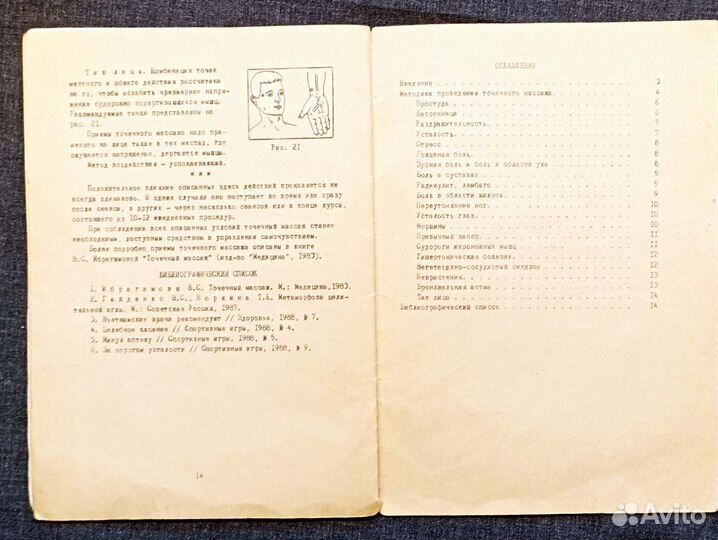 Тик лица. Комбинация точек
местного и общего действия рассчитана
на то, чтобы ослабить чрезмерное напря-
жение судорожно подергивающихся мышц.
Рекомендуемые точки представлены на
рис. 21.
Приемы точечного массажа надо при-
менять на лице также в тех местах, где
ощущается напряжение, дергаются мышцы.
Метод воздействия - успокаивающий.
Рис. 21
* * *
Положительное влияние описанных здесь действий проявляется не
всегда одинаково. В одних случаях оно наступает во время или сразу
после сеанса, в других - через несколько сеансов или в конце курса,
состоящего из 10-12 ежедневных процедур.
При соблюдении всех описанных условий точечный массаж станет
необходимым, доступным средством в управлении самочувствием.
Более подробно приемы точечного массажа описаны в книге
В.С. Ибрагимовой "Точечный массаж" (изд-во "Медицина", 1983).
БИБЛИОГРАФИЧЕСКИЙ СПИСОК
1. Ибрагимова В.С. Точечный массаж. М.: Медицина, 1983.
2. Гайденко В.С., Норкина Т.Б. Метаморфозы цели-
тельной иглы. М.: Советская Россия, 1987.
3. Вьетнамские врачи рекомендуют // Здоровье, 1988, № 7.
4. Целебное касание // Спортивные игры, 1988, № 4.
5. Минуя аптеку // Спортивные игры, 1988, № 5.
6. За порогом усталости // Спортивные игры, 1988, № 9.
14
ОГЛАВЛЕНИЕ
Введение 3
Методика проведения точечного массажа. 4
Простуда 6
Бессонница 6
Раздражительность. 7
Усталость. 7
Стресс 8
Головная боль. 8
Зубная боль и боль в области уха 8
Боль в суставах 9
Радикулит, люмбаго 9
Боль в области живота. 9
Переутомление ног. 10
Усталость глаз. 10
Морщины 10
Привычный запор. 11
Судороги икроножных мышц 11
Гипертоническая болезнь. 12
Вегетативно-сосудистый синдром 12
Неврастения. 13
Бронхиальная астма 13
Тик лица 14
Библиографический список 14
Avito